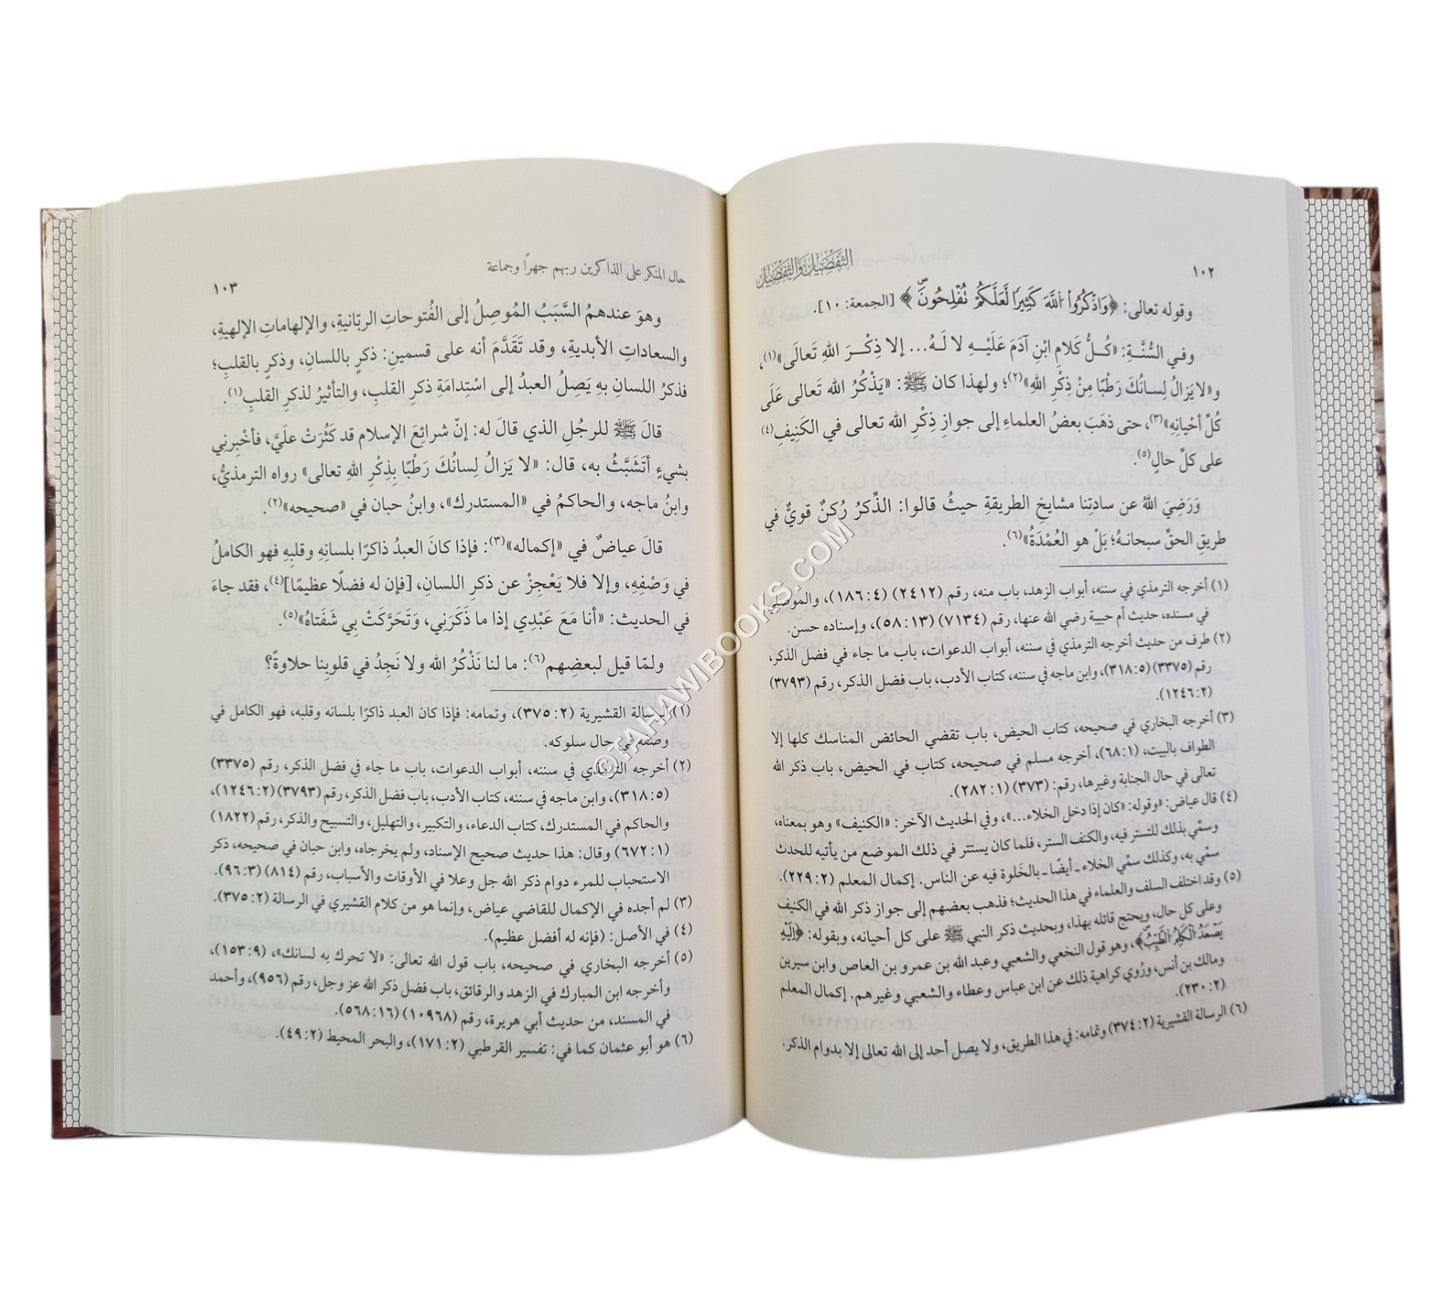 ١٠٢
التفضيل والتفصيل
وقوله تعالى: ﴿وَاذْكُرُوا اللَّهَ كَثِيرًا لَعَلَّكُمْ تُفْلِحُونَ﴾ [الجمعة: ١٠].
وفي السُّنَّةِ: «كُلُّ كلامِ ابْنِ آدَمَ عَلَيْهِ لا لَهُ... إلا ذِكْرَ اللهِ تَعالَى»(١)،
و«لا يَزالُ لِسانُكَ رَطْبًا مِنْ ذِكْرِ اللهِ»(٢)؛ ولهذا كان ﷺ: «يَذْكُرُ الله تَعالى عَلَى
كُلِّ أحْيانِهِ»(٣)، حتى ذهَبَ بعضُ العلماءِ إلى جوازِ ذِكْرِ الله تعالى في الكَنِيفِ(٤)
على كلِّ حالٍ(٥).
وَرَضِيَ اللهُ عن سادتِنا مشايخِ الطريقةِ حيثُ قالوا: الذِّكرُ رُكنٌ قويٌّ في
طريقِ الحقِّ سبحانهُ؛ بَلْ هو العُمْدَةُ»(٦).
(١) أخرجه الترمذي في سننه، أبواب الزهد، باب منه، رقم (٢٤١٢) (٤: ١٨٦)، والموصلي
في مسنده، حديث أم حبيبة رضي الله عنها، رقم (٧١٣٤) (١٣: ٥٨)، وإسناده حسن.
(٢) طرف من حديث أخرجه الترمذي في سننه، أبواب الدعوات، باب ما جاء في فضل الذكر،
رقم (٣٣٧٥) (٥: ٣١٨)، وابن ماجه في سننه، كتاب الأدب، باب فضل الذكر، رقم (٣٧٩٣)
(٢: ١٢٤٦).
(٣) أخرجه البخاري في صحيحه، كتاب الحيض، باب تقضي الحائض المناسك كلها إلا
الطواف بالبيت، (١: ٦٨)، أخرجه مسلم في صحيحه، كتاب في الحيض، باب ذكر الله
تعالى في حال الجنابة وغيرها، رقم: (٣٧٣) (١: ٢٨٢).
(٤) قال عياض: «وقوله: «كان إذا دخل الخلاء...»، وفي الحديث الآخر: «الكنيف» وهو بمعناه،
وسمّي بذلك للتستر فيه، والكنف الستر، فلما كان يستتر في ذلك الموضع من يأتيه للحدث
سمّي به، وكذلك سمّي الخلاء ـ أيضًا ـ بالخَلوة فيه عن الناس. إكمال المعلم (٢: ٢٢٩).
(٥) وقد اختلف السلف والعلماء في هذا الحديث؛ فذهب بعضهم إلى جواز ذكر الله في الكنيف
وعلى كل حال، ويحتج قائله بهذا، وبحديث ذكر النبي ﷺ على كل أحيانه، وبقوله: ﴿إِلَيْهِ
يَصْعَدُ الْكَلِمُ الطَّيِّبُ﴾، وهو قول النخعي والشعبي وعبد الله بن عمرو بن العاص وابن سيرين
ومالك بن أنس، ورُوي كراهية ذلك عن ابن عباس وعطاء والشعبي وغيرهم. إكمال المعلم
(٢: ٢٣٠).
(٦) الرسالة القشيرية (٢: ٣٧٤) وتمامه: في هذا الطريق، ولا يصل أحد إلى الله تعالى إلا بدوام الذكر،
حال المنكر على الذاكرين ربهم جهرًا وجماعة
١٠٣
وهوَ عندهمُ السَّبَبُ المُوصِلُ إلى الفُتوحاتِ الربّانيةِ، والإلهاماتِ الإلهيةِ،
والسعاداتِ الأبديةِ، وقد تَقَدَّمَ أنه على قسمينِ: ذكرٍ باللسانِ، وذكرٍ بالقلبِ؛
فذكرُ اللسانِ بهِ يَصِلُ العبدُ إلى اسْتِدامَةِ ذكرِ القلبِ، والتأثيرُ لذكرِ القلبِ(١).
قالَ ﷺ للرجُلِ الذي قالَ له: إنّ شرائِعَ الإسلام قد كَثُرَتْ علَيَّ، فأخْبِرني
بشيءٍ أتَشَبَّثُ به، قال: «لا يَزالُ لِسانُكَ رَطْبًا بِذِكْرِ اللهِ تعالى» رواه الترمذيُّ،
وابنُ ماجه، والحاكمُ في «المستدرك»، وابنُ حبان في «صحيحه»(٢).
قالَ عياضٌ في «إكماله»(٣): فإذا كانَ العبدُ ذاكرًا بلسانِهِ وقلبِهِ فهو الكاملُ
في وَصْفِهِ، وإلا فلا يَعْجِزْ عن ذكرِ اللسانِ، [فإن له فضلًا عظيمًا](٤)، فقد جاءَ
في الحديث: «أنا مَعَ عَبْدِي إذا ما ذَكَرَني، وَتَحَرَّكَتْ بِي شَفَتاهُ»(٥).
ولمّا قيل لبعضِهم(٦): ما لنا نَذْكُرُ الله ولا نَجِدُ في قلوبِنا حلاوةً؟
(١) الرسالة القشيرية (٢: ٣٧٥)، وتمامه: فإذا كان العبد ذاكرًا بلسانه وقلبه، فهو الكامل في
وصفه في حال سلوكه.
(٢) أخرجه الترمذي في سننه، أبواب الدعوات، باب ما جاء في فضل الذكر، رقم (٣٣٧٥)
(٥: ٣١٨)، وابن ماجه في سننه، كتاب الأدب، باب فضل الذكر، رقم (٣٧٩٣) (٢: ١٢٤٦)،
والحاكم في المستدرك، كتاب الدعاء، والتكبير، والتهليل، والتسبيح والذكر، رقم (١٨٢٢)
(١: ٦٧٢) وقال: هذا حديث صحيح الإسناد، ولم يخرجاه، وابن حبان في صحيحه، ذكر
الاستحباب للمرء دوام ذكر الله جل وعلا في الأوقات والأسباب، رقم (٨١٤) (٣: ٩٦).
(٣) لم أجده في الإكمال للقاضي عياض، وإنما هو من كلام القشيري في الرسالة (٢: ٣٧٥).
(٤) في الأصل: (فإنه له أفضل عظيم).
(٥) أخرجه البخاري في صحيحه، باب قول الله تعالى: «لا تحرك به لسانك»، (٩: ١٥٣)،
وأخرجه ابن المبارك في الزهد والرقائق، باب فضل ذكر الله عز وجل، رقم (٩٥٦)، وأحمد
في المسند، من حديث أبي هريرة، رقم (١٠٩٦٨) (١٦: ٥٦٨).
(٦) هو أبو عثمان كما في: تفسير القرطبي (٢: ١٧١)، والبحر المحيط (٢: ٤٩).
©TAHAWIBOOKS.COM